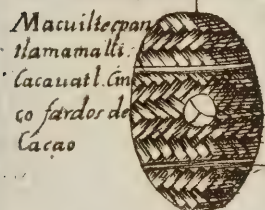 Macuiltecpan
tlamamalli.
Cacauatl. Cin
ço fardos de
Cacao